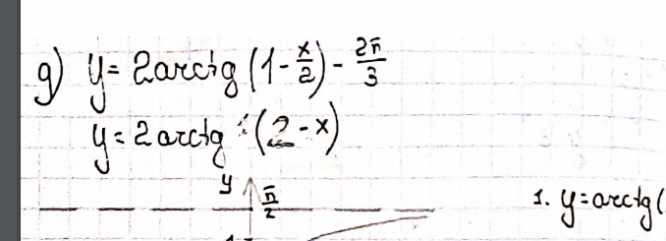 g) y = 2arctg (1 - x/2) - 2π/3
y = 2arctg (2 - x)
y π/2
1. y = arctg (